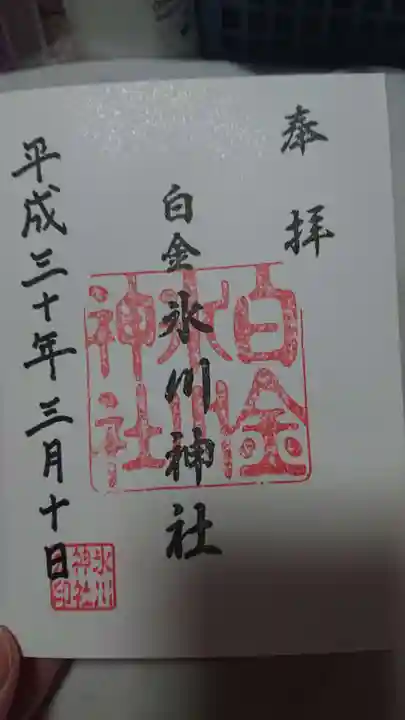 奉拝
白金氷川神社
平成三十年三月十日
白金
氷川
神社
氷川
神社
之印